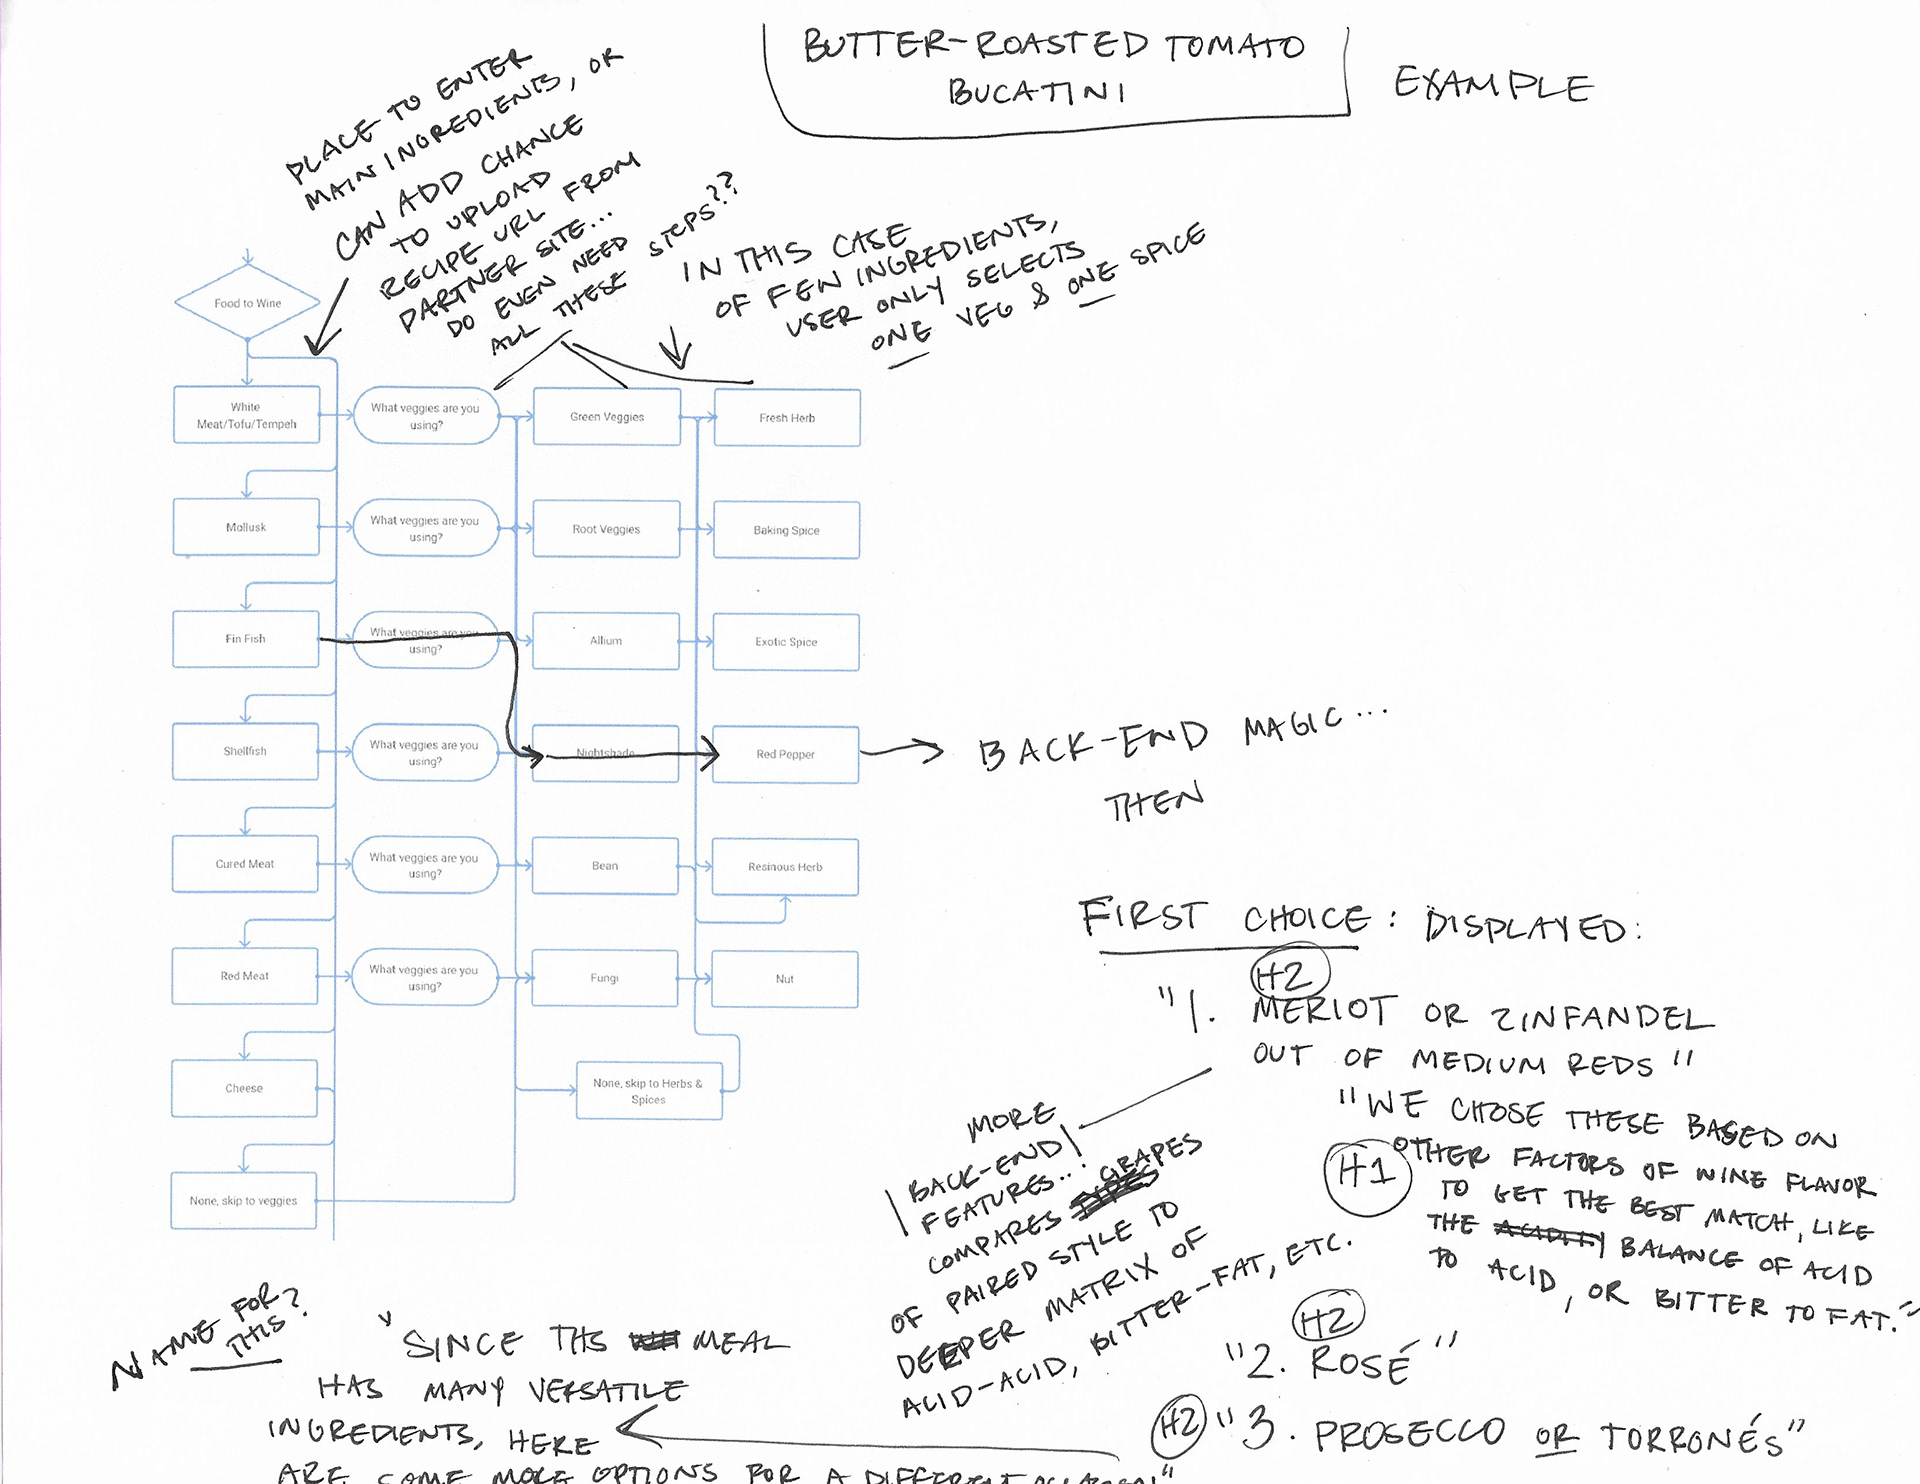 BUTTER-ROASTED TOMATO
BUCATINI
EXAMPLE
PLACE TO ENTER
MAIN INGREDIENTS, OR
CAN ADD CHANCE
TO UPLOAD
RECIPE URL FROM
PARTNER SITE...
DO EVEN NEED
ALL THESE STEPS??
IN THIS CASE
OF FEW INGREDIENTS,
USER ONLY SELECTS
ONE VEG & ONE SPICE
Food to Wine
White
Meat/Tofu/Tempeh
What veggies are you
using?
Green Veggies
Fresh Herb
Mollusk
What veggies are you
using?
Root Veggies
Baking Spice
Fin Fish
What veggies are you
using?
Allium
Exotic Spice
Shellfish
What veggies are you
using?
Nightshade
Red Pepper
BACK-END MAGIC...
THEN
Cured Meat
What veggies are you
using?
Bean
Resinous Herb
Red Meat
What veggies are you
using?
Fungi
Nut
Cheese
None, skip to Herbs &
Spices
None, skip to veggies
FIRST CHOICE: DISPLAYED:
H2
"1. MERLOT OR ZINFANDEL
OUT OF MEDIUM REDS"
"WE CHOSE THESE BASED ON
H1
OTHER FACTORS OF WINE FLAVOR
TO GET THE BEST MATCH, LIKE
THE BALANCE OF ACID
TO ACID, OR BITTER TO FAT."
MORE
BACK-END
FEATURES...
COMPARES GRAPES
OF PAIRED STYLE TO
DEEPER MATRIX OF
ACID-ACID, BITTER-FAT, ETC.
H2
"2. ROSÉ"
H2
"3. PROSECCO OR TORRONÉS"
NAME FOR
THIS?
"SINCE THS MEAL
HAS MANY VERSATILE
INGREDIENTS, HERE
ARE SOME MORE OPTIONS FOR A DIFFERENT